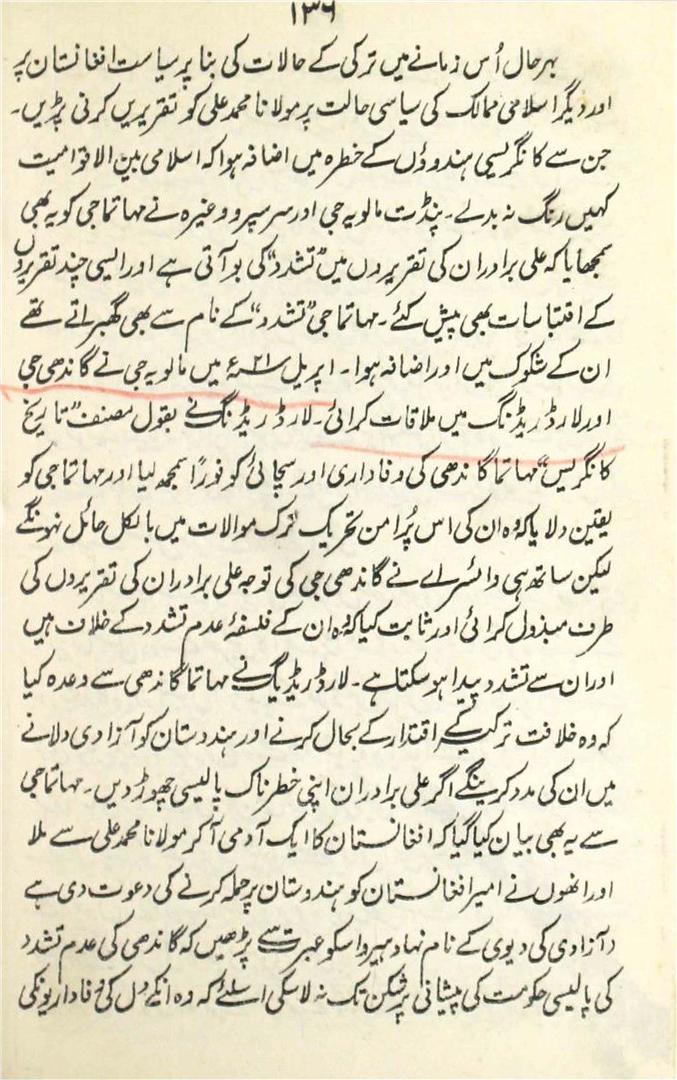 ۱۳۶
بہرحال اُس زمانے میں ترکی کے حالات کی بنا پر سیاست افغانستان پر
اور دیگر اسلامی ممالک کی سیاسی حالت پر مولانا محمد علی کو تقریریں کرنی پڑیں۔
جن سے کانگریسی ہندوؤں کے خطرہ میں اضافہ ہوا کہ اسلامی بین الاقوامیت
کہیں رنگ نہ بدلے۔ پنڈت مالویہ جی اور سر سپرو وغیرہ نے مہاتما جی کو یہ بھی
سمجھایا کہ علی برادران کی تقریروں میں "تشدد" کی بو آتی ہے اور ایسی چند تقریروں
کے اقتباسات بھی پیش کئے۔ مہاتما جی "تشدد" کے نام سے بھی گھبراتے تھے
ان کے شکوک میں اور اضافہ ہوا۔ اپریل ۲۱ء میں مالویہ جی نے گاندھی جی
اور لارڈ ریڈنگ میں ملاقات کرائی۔ لارڈ ریڈنگ نے بقول مصنف "تاریخ
کانگریس" مہاتما گاندھی کی وفاداری اور سچائی کو فوراً سمجھ لیا اور مہاتما جی کو
یقین دلایا کہ وہ ان کی اس پُرامن تحریک ترک موالات میں بالکل حائل نہونگے
لیکن ساتھ ہی وائسرائے نے گاندھی جی کی توجہ علی برادران کی تقریروں کی
طرف مبذول کرائی اور ثابت کیا کہ وہ ان کے فلسفۂ عدم تشدد کے خلاف ہیں
اور ان سے تشدد پیدا ہو سکتا ہے۔ لارڈ ریڈنگ نے مہاتما گاندھی سے وعدہ کیا
کہ وہ خلافت ترکیہ کے اقتدار کے بحال کرنے اور ہندستان کو آزادی دلانے
میں ان کی مدد کرینگے اگر علی برادران اپنی خطرناک پالیسی چھوڑ دیں۔ مہاتما جی
سے یہ بھی بیان کیا گیا کہ افغانستان کا ایک آدمی آکر مولانا محمد علی سے ملا
اور انھوں نے امیر افغانستان کو ہندوستان پر حملہ کرنے کی دعوت دی ہے
(آزادی کی دیوی کے نام نہاد ہیرو اسکو عبرت سے پڑھیں کہ گاندھی کی عدم تشدد
کی پالیسی حکومت کی پیشانی پر شکن تک نہ لاسکی اسلئے کہ وہ انکے دل کی وفاداریونکی